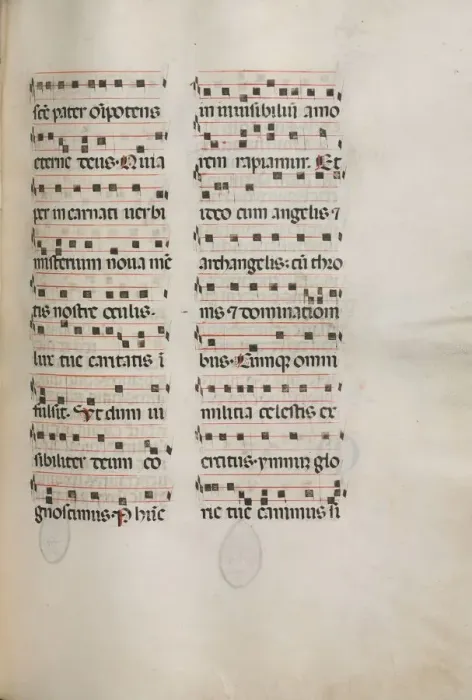 sc̄e pater om̄ipotens
eterne deus. Quia
per incarnati uerbi
misterium noua mē
tis nostre oculis.
lux tue caritatis ī
fulsit. Ut dum ui
sibiliter deum co
gnoscimus. P hūc
in inuisibiliū amo
rem rapiamur. Et
ideo cum angelis ⁊
archangelis: cū thro
nis ⁊ dominationi
bus. Cumqȝ omni
militia celestis ex
ercitus. ymnum glo
rie tue canimus si